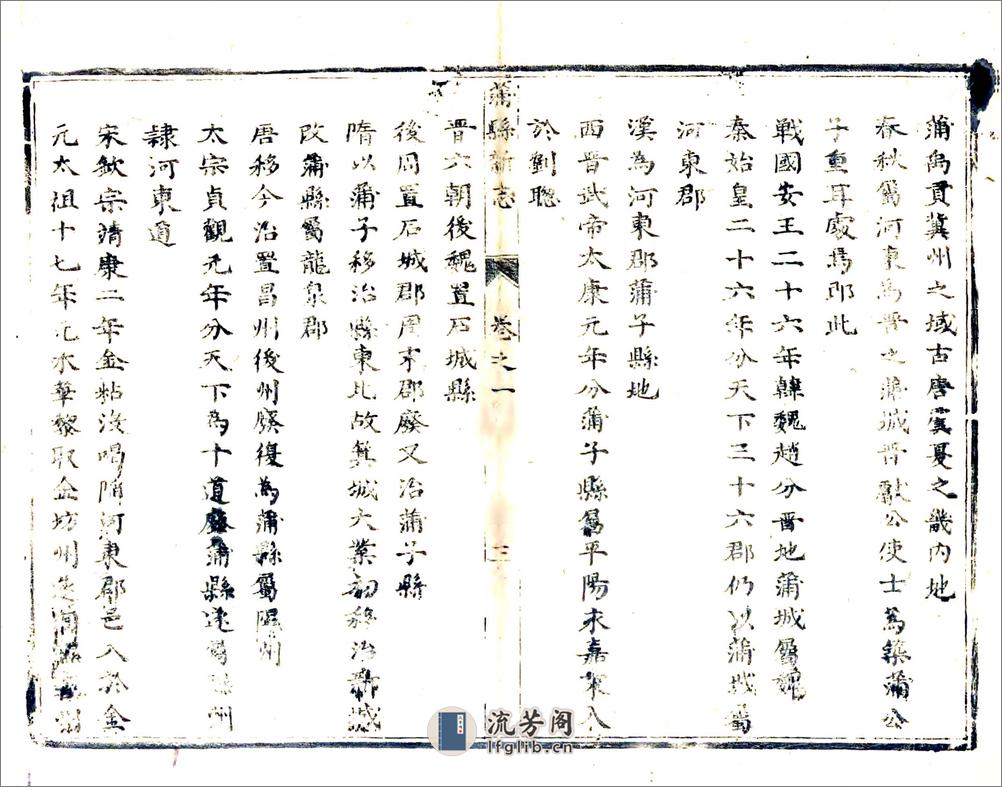 蒲禹貢冀州之域古唐虞夏之畿内地
春秋屬河東為晋之蒲城晋獻公使士為築蒲公
子重耳處焉即此
戰國安王二十六年韓魏趙分晋地蒲城屬魏
秦始皇二十六年分天下三十六郡仍以蒲城屬
河東郡
漢為河東郡蒲子縣地
西晋武帝太康元年分蒲子縣屬平陽永嘉末入
於劉聰
蒲縣新志 卷之一 三
晋六朝後魏置石城縣
後周置石城郡周末郡廢又治蒲子縣
隋以蒲子移治縣東北故箕城大業初移治新城
改蒲縣屬龍泉郡
唐移今治置昌州後州廢復為蒲縣屬隰州
太宗貞觀元年分天下為十道廢蒲縣還屬隰州
隸河東道
宋欽宗靖康二年金粘没喝陷河東郡邑入於金
元太祖十七年元木華黎取金坊州
流芳阁
lfglib.cn